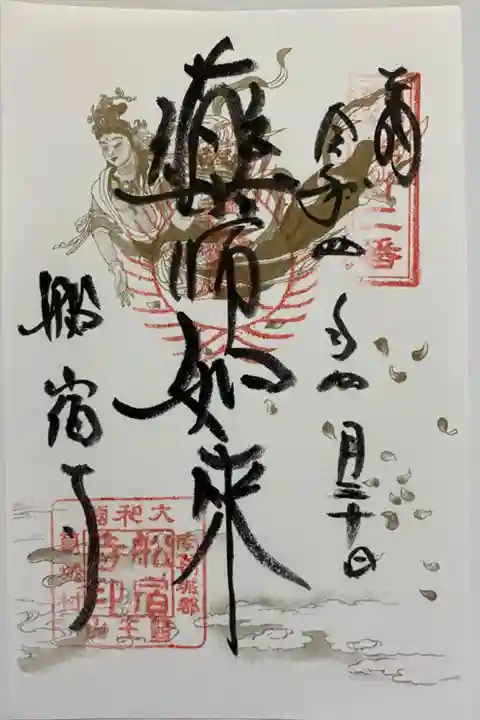 奉拝
二番
令和四年四月三十日
薬師如来
船宿寺
大和
船宿
寺印